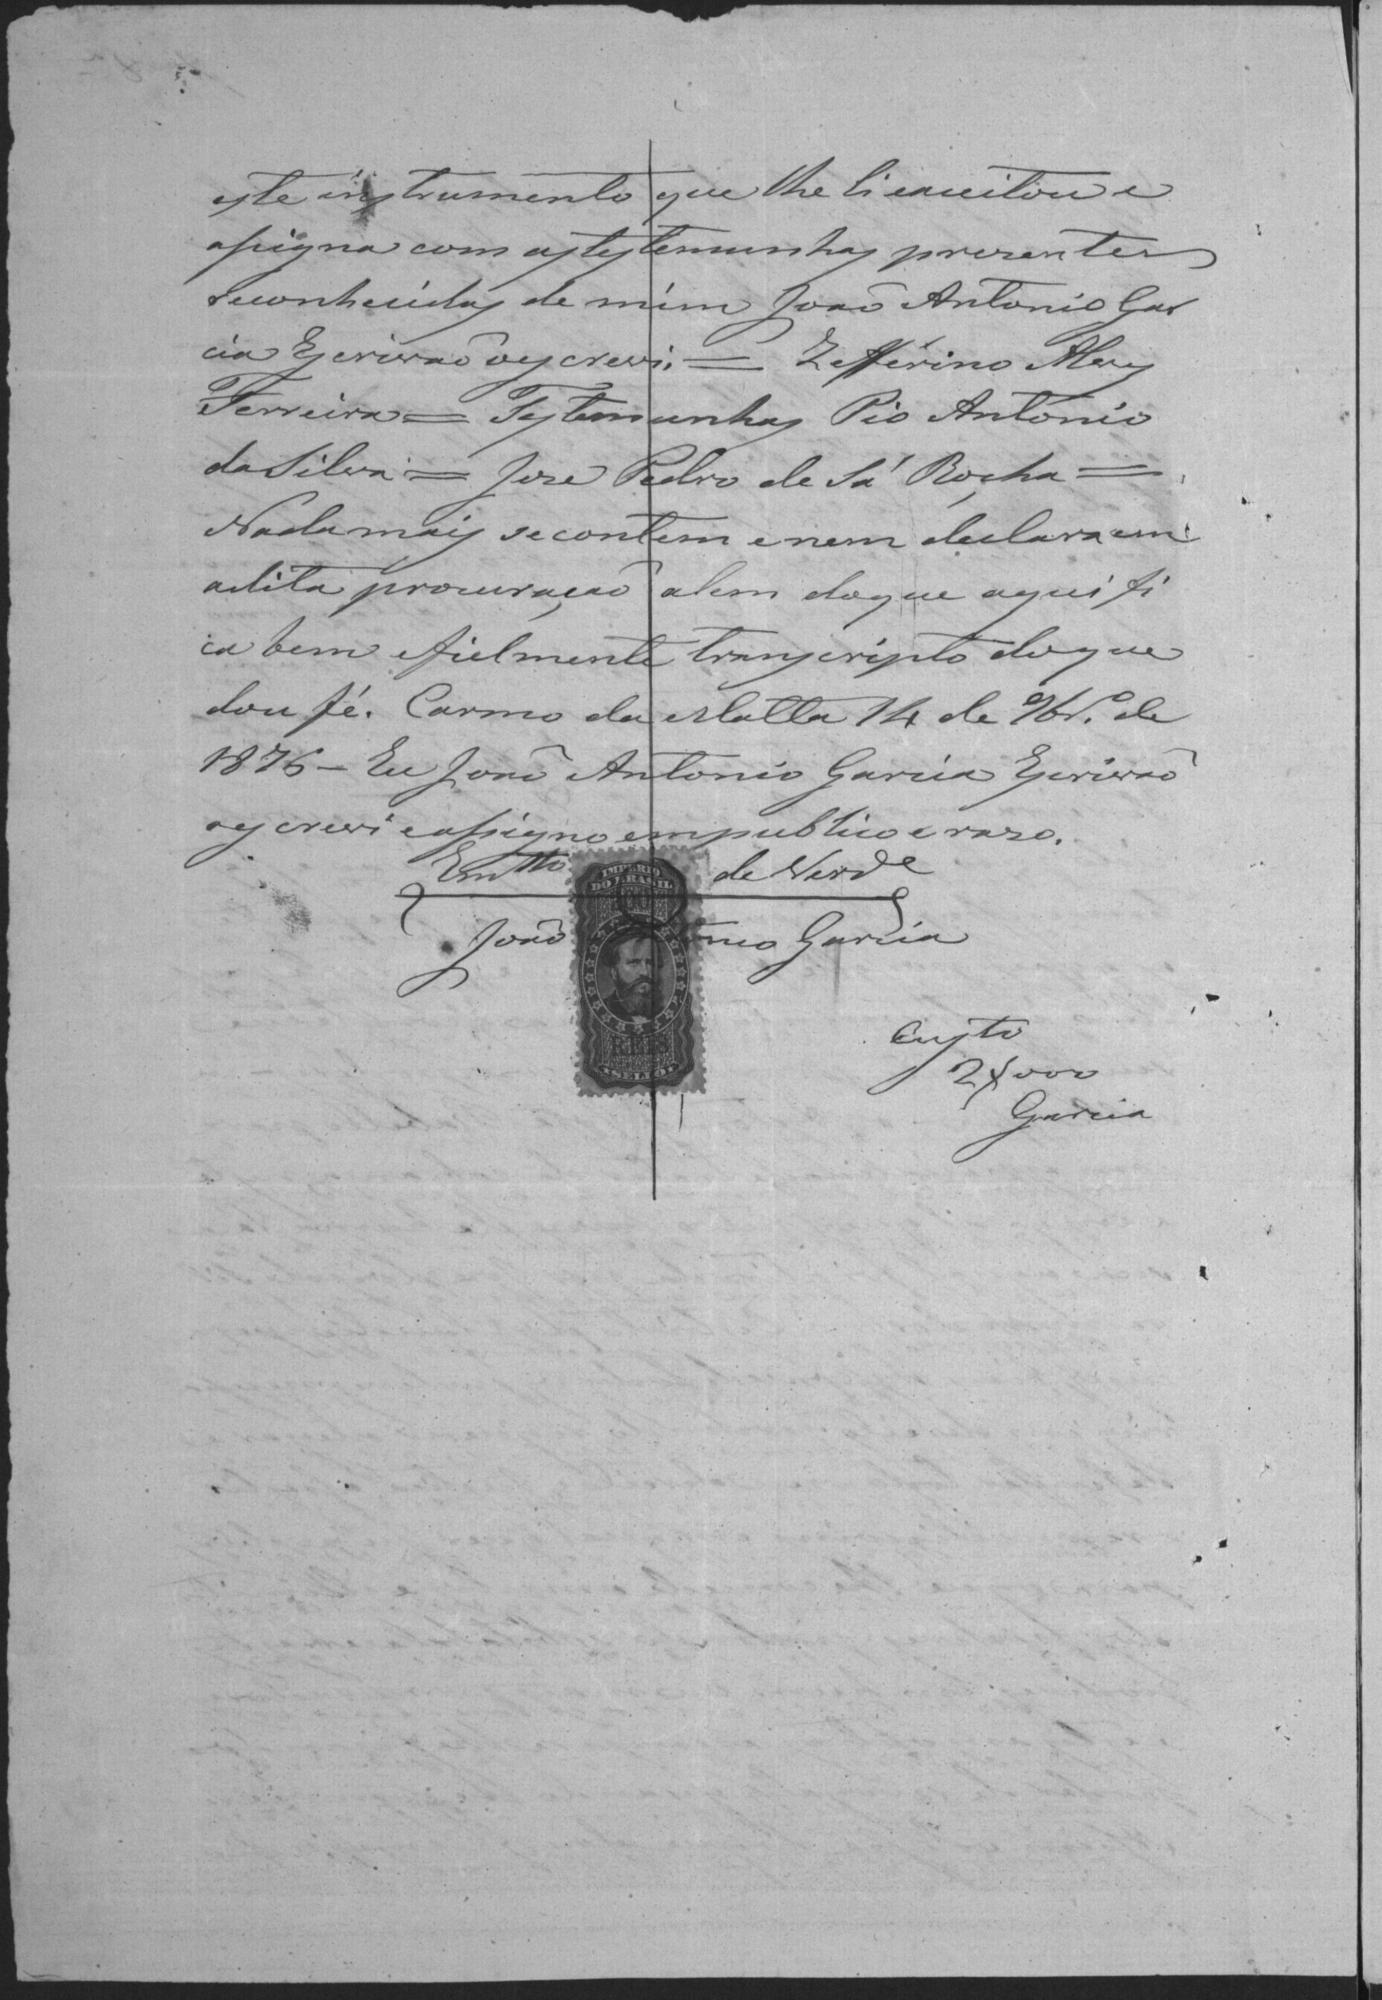 este instrumento que lhe li eaceitou e
assigna com as testemunhas presentes
reconhecidas de mim João Antonio Gar
cia Escrivão oescrevi. = Zefferino Alves
Ferreira = Testemunhas Pio Antonio
da Silva = Jose Pedro de Sá Rocha =
Nada mais se contem e nem declara em
adita procuração alem doque aqui fi
ca bem efielmente transcripto doque
dou fé. Carmo da Matta 14 de 9br.º de
1876 – Eu João Antonio Garcia Escrivão
oescrevi eassigno empublico e raso.
Em tto de Verde
IMPERIO
DO BRASIL
200
João Antonio Garcia
REIS
SELLO
Custo
2$000
Garcia